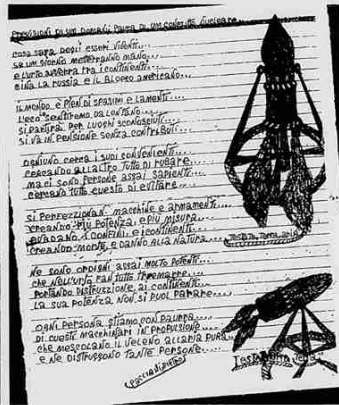 PREVISIONI DI UN DOMANI PAURA DI UN CONFLITTO NUCLEARE...
COSA SARA DEGLI ESSERI VIVENTI...
SE UN GIORNO METTERANNO MANO...
E L'URTO AVVERRA TRA I CONTINENTI...
CINA LA RUSSIA E IL BLOCCO AMERICANO...
IL MONDO E PIENO DI SPASIMI E LAMENTI...
L'ECO SENTIREMO DA LONTANO...
SI PARTIRA PER LUOGHI SCONOSCIUTI...
SI VA IN PENSIONE SENZA CONTRIBUTI...
OGNIUNO CERCA I SUOI CONVENIENTI...
CERCANDO ALL'ALTRO TUTTO DI RUBARE...
MA CI SONO PERSONE ASSAI SAPIENTI...
CERCANO TUTTO QUESTO DI EVITARE...
SI PERFEZZIONAN MACCHINE E ARMAMENTI...
CREANDO PIU POTENZA, E PIU MISURA...
CONFINI, E CONTINENTI...
CREANDO MORTE, E DANNO ALLA NATURA...
TERRA ARIA
NE SONO ORDIGNI ASSAI MOLTO POTENTI...
CHE NELL'URTO FAN TUTTO TREMARE...
PORTANDO DISTRUZZIONE, AI CONTINENTI...
LA SUA POTENZA NON SI PUOL PARARE...
OGNI PERSONA STIAMO CON PAURRA...
DI QUESTI MACCHINARI IN PROPULSIONE...
CHE MESCOLANO IL VELENO ALL'ARIA PURA...
E NE DISTRUSSONO TANTE PERSONE...